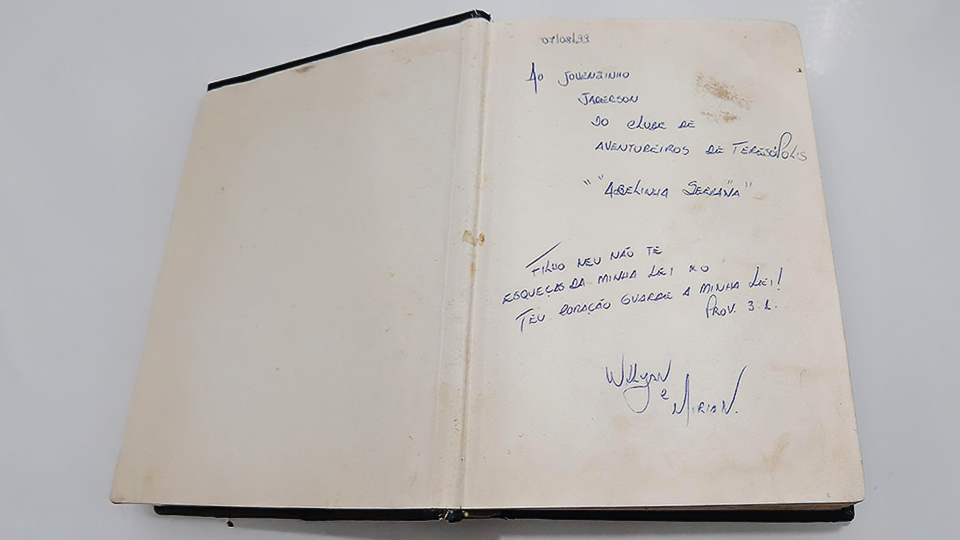 07/08/99
Ao Jovenzinho
Jaderson
do clube de
Aventureiros de Teresópolis
" "Abelinha Serrana" "
Filho meu não te
esqueças da minha lei e o
Teu coração guarde a minha lei!
Prov. 3.1.
Willyan
e
Mirian.